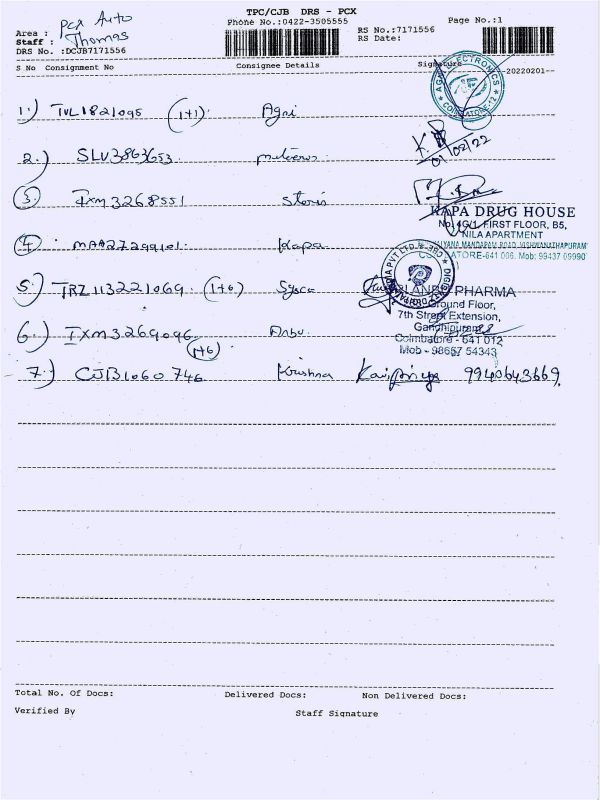 TPC/CJB DRS - PCX
Phone No.:0422-3505555
Page No.:1
Area : PCX Auto
Staff : Thomas
DRS No. :DCJB7171556
RS No.:7171556
RS Date:
S No Consignment No Consignee Details Signature 20220201
AGNI ELECTRONICS
COIMBATORE-12
1.) TVL1821095 (1+1) Agni
2.) SLV3863653
01/02/22
3. IXM3268551 Storis
KAPA DRUG HOUSE
No. 4G/1, FIRST FLOOR, B5,
NILA APARTMENT
KALYANA MANDAPAM ROAD, VISHWANATHAPURAM
COIMBATORE-641 006. Mob: 99437 09990
4. MAA27299101 Kapa
5.) TRZ113221069 (1+6) Sysca
PHARMA
Ground Floor,
7th Street Extension,
Gandhipuram
Coimbatore - 641 012
Mob - 98657 54343
6.) IXM3269096 Anbu
(1+6)
7.) CJB1060746 Krishna 9940643669
Total No. Of Docs: Delivered Docs: Non Delivered Docs:
Verified By Staff Signature